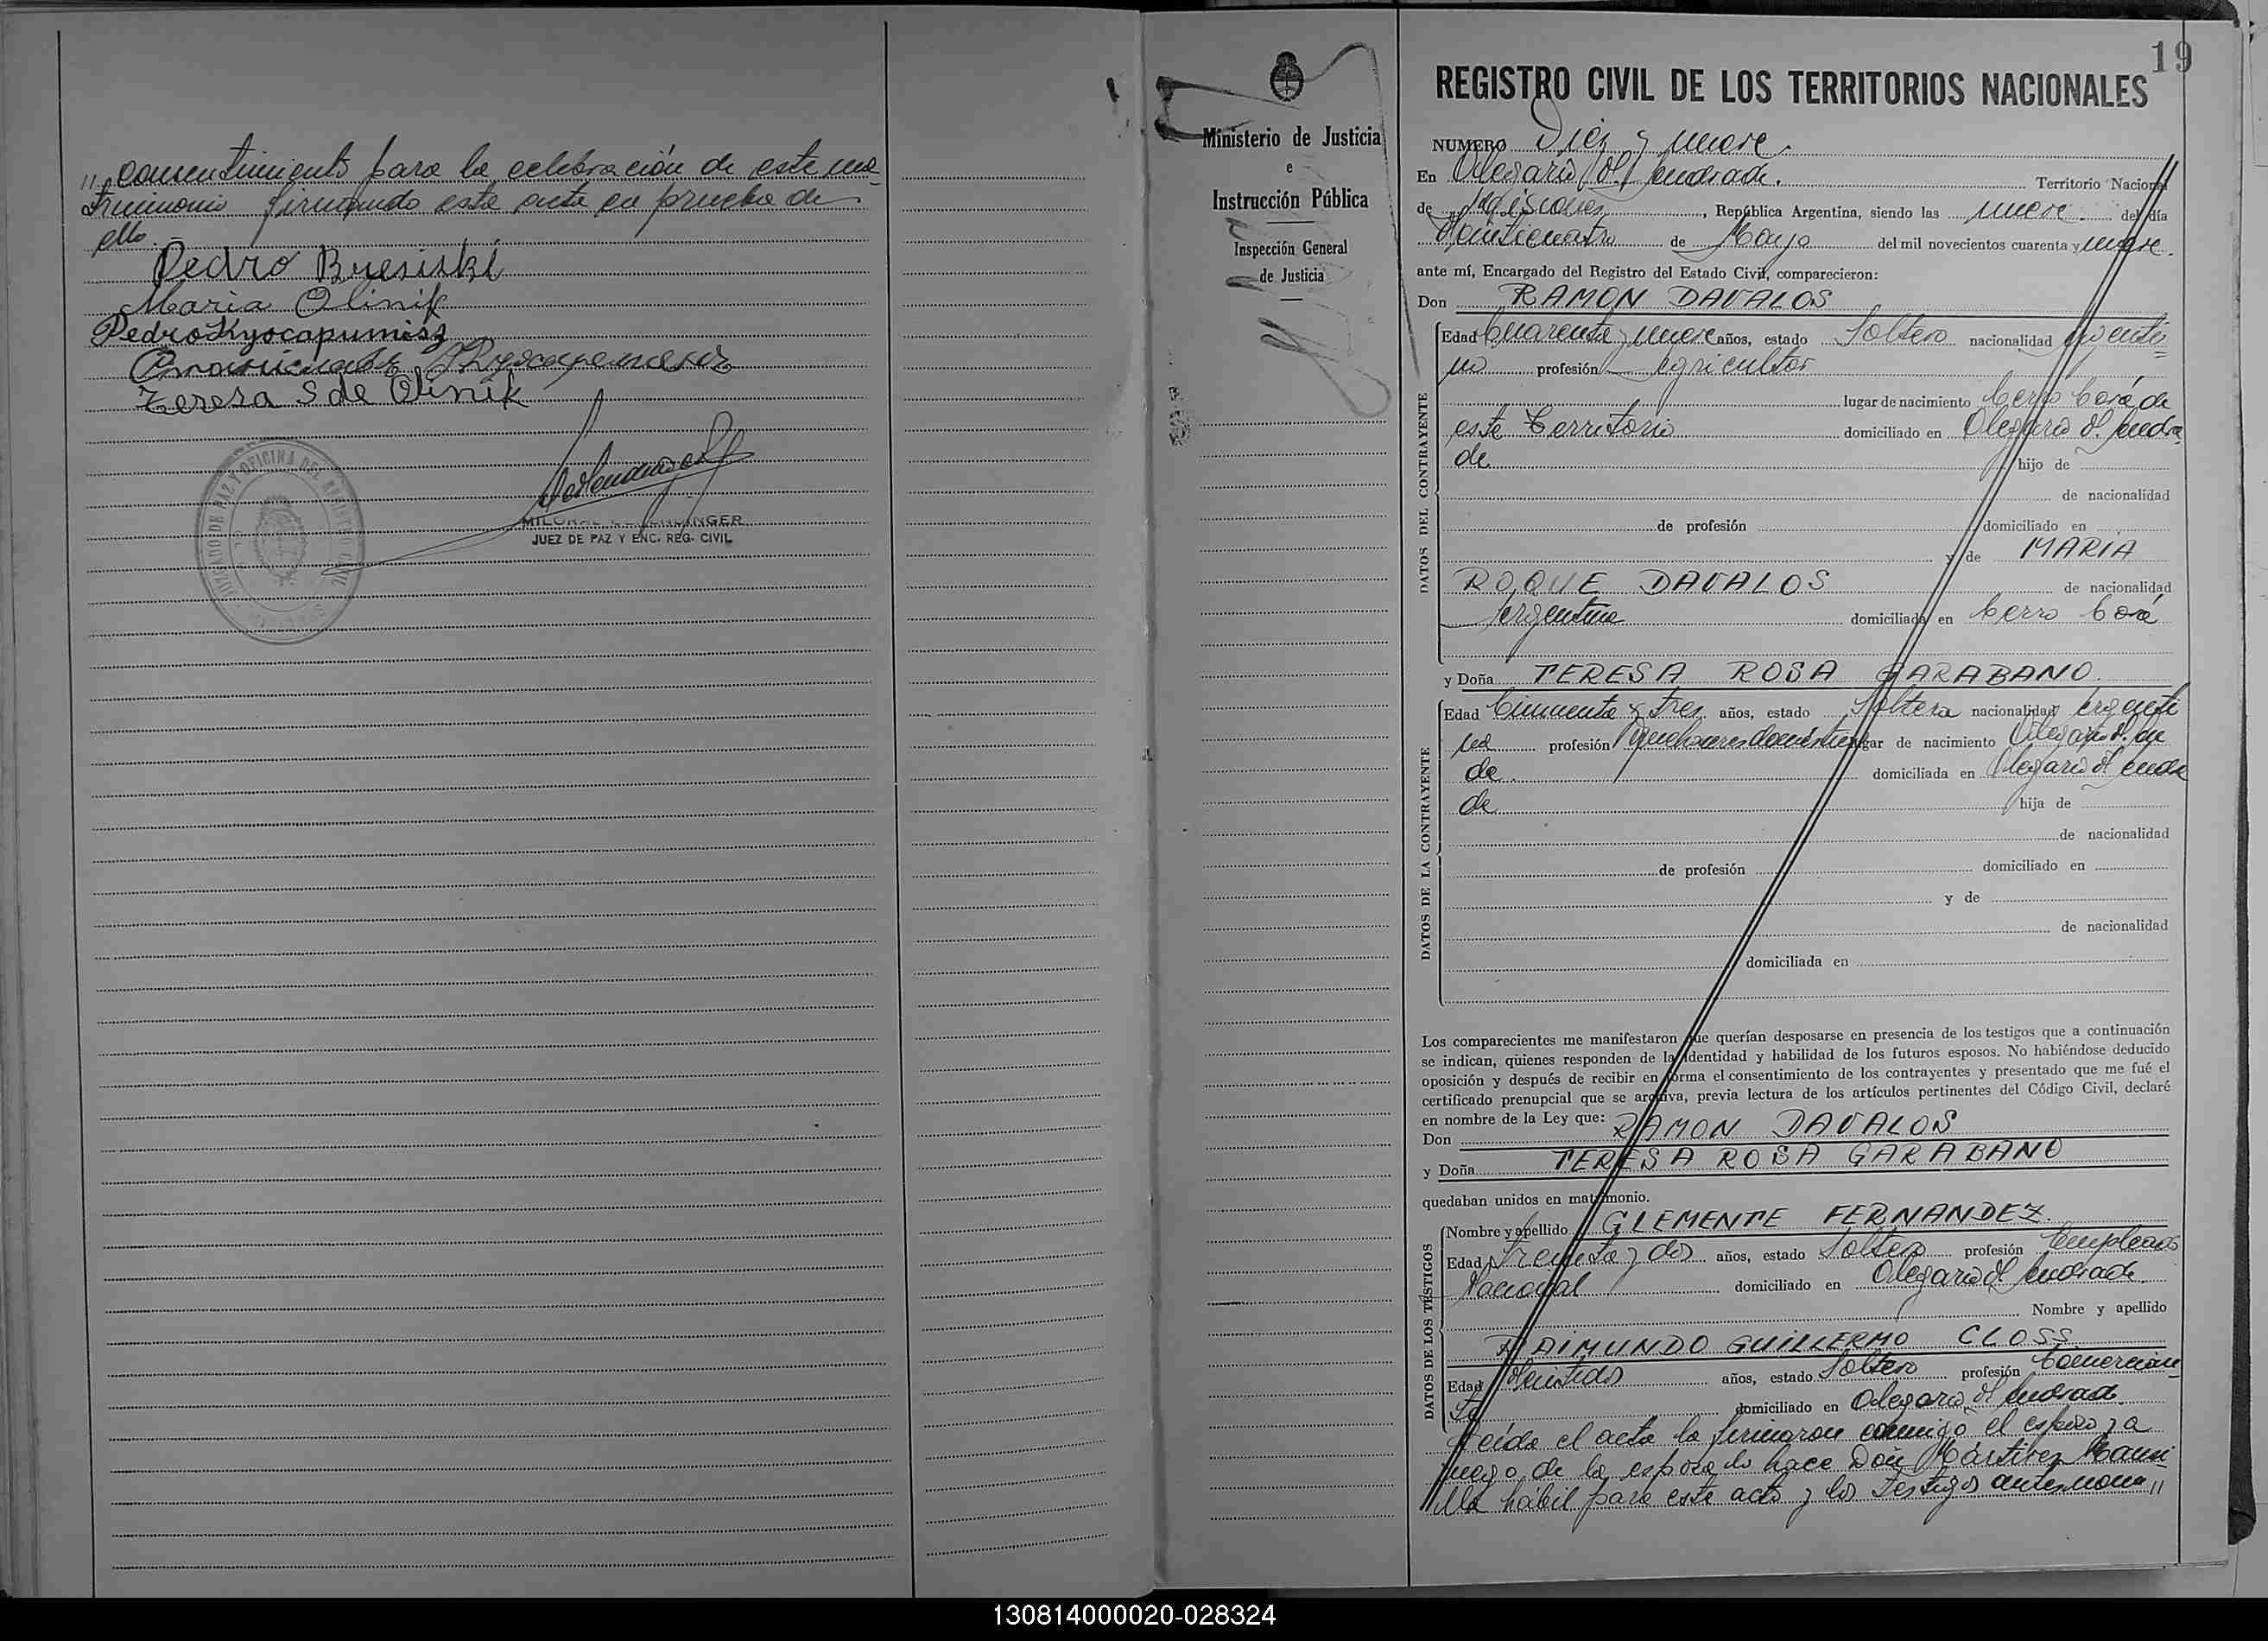 " consentimiento para la celebración de este ma-
trimonio firmando este acta en prueba de
ello.-
Pedro Bresiski
Maria Olinik
Pedro Kryocapumisz
Teresa S de Olinik
JUZGADO DE PAZ Y OFICINA DEL REGISTRO CIVIL
JUEZ DE PAZ Y ENC. REG. CIVIL
Ministerio de Justicia
e
Instrucción Pública
Inspección General
de Justicia
19
REGISTRO CIVIL DE LOS TERRITORIOS NACIONALES
NUMERO Diez y nueve.
En Olegario V. Andrade. Territorio Nacional
de Misiones, República Argentina, siendo las nueve del día
Veinticuatro de Mayo del mil novecientos cuarenta y nueve.
ante mí, Encargado del Registro del Estado Civil, comparecieron:
Don RAMON DAVALOS
DATOS DEL CONTRAYENTE
Edad Cuarenta y nueve años, estado Soltero nacionalidad Argenti-
no profesión Agricultor
lugar de nacimiento Cerro Corá de
este Territorio domiciliado en Olegario V. Andra-
de hijo de
de nacionalidad
de profesión domiciliado en
y de MARIA
ROQUE DAVALOS de nacionalidad
Argentina domiciliada en Cerro Corá
y Doña TERESA ROSA GARABANO.
DATOS DE LA CONTRAYENTE
Edad Cincuenta y tres años, estado Soltera nacionalidad Argenti
na profesión Quehaceres domésticos lugar de nacimiento Olegario V. An
de domiciliada en Olegario V. Andra
de hija de
de nacionalidad
de profesión domiciliado en
y de
de nacionalidad
domiciliada en
Los comparecientes me manifestaron que querían desposarse en presencia de los testigos que a continuación
se indican, quienes responden de la identidad y habilidad de los futuros esposos. No habiéndose deducido
oposición y después de recibir en forma el consentimiento de los contrayentes y presentado que me fué el
certificado prenupcial que se archiva, previa lectura de los artículos pertinentes del Código Civil, declaré
en nombre de la Ley que:
Don RAMON DAVALOS
y Doña TERESA ROSA GARABANO
quedaban unidos en matrimonio.
DATOS DE LOS TESTIGOS
Nombre y apellido CLEMENTE FERNANDEZ.
Edad Treinta y dos años, estado Soltero profesión Empleado
Nacional domiciliado en Olegario V. Andrade.
Nombre y apellido
RAIMUNDO GUILLERMO CLOSS
Edad Veintidos años, estado Soltero profesión Comercian-
te domiciliado en Olegario V. Andrade.
Leida el acta la firmaron conmigo el esposo, a
ruego de la esposa lo hace Don Mansi-
lla hábil para este acto y los Testigos antes nom "
130814000020-028324